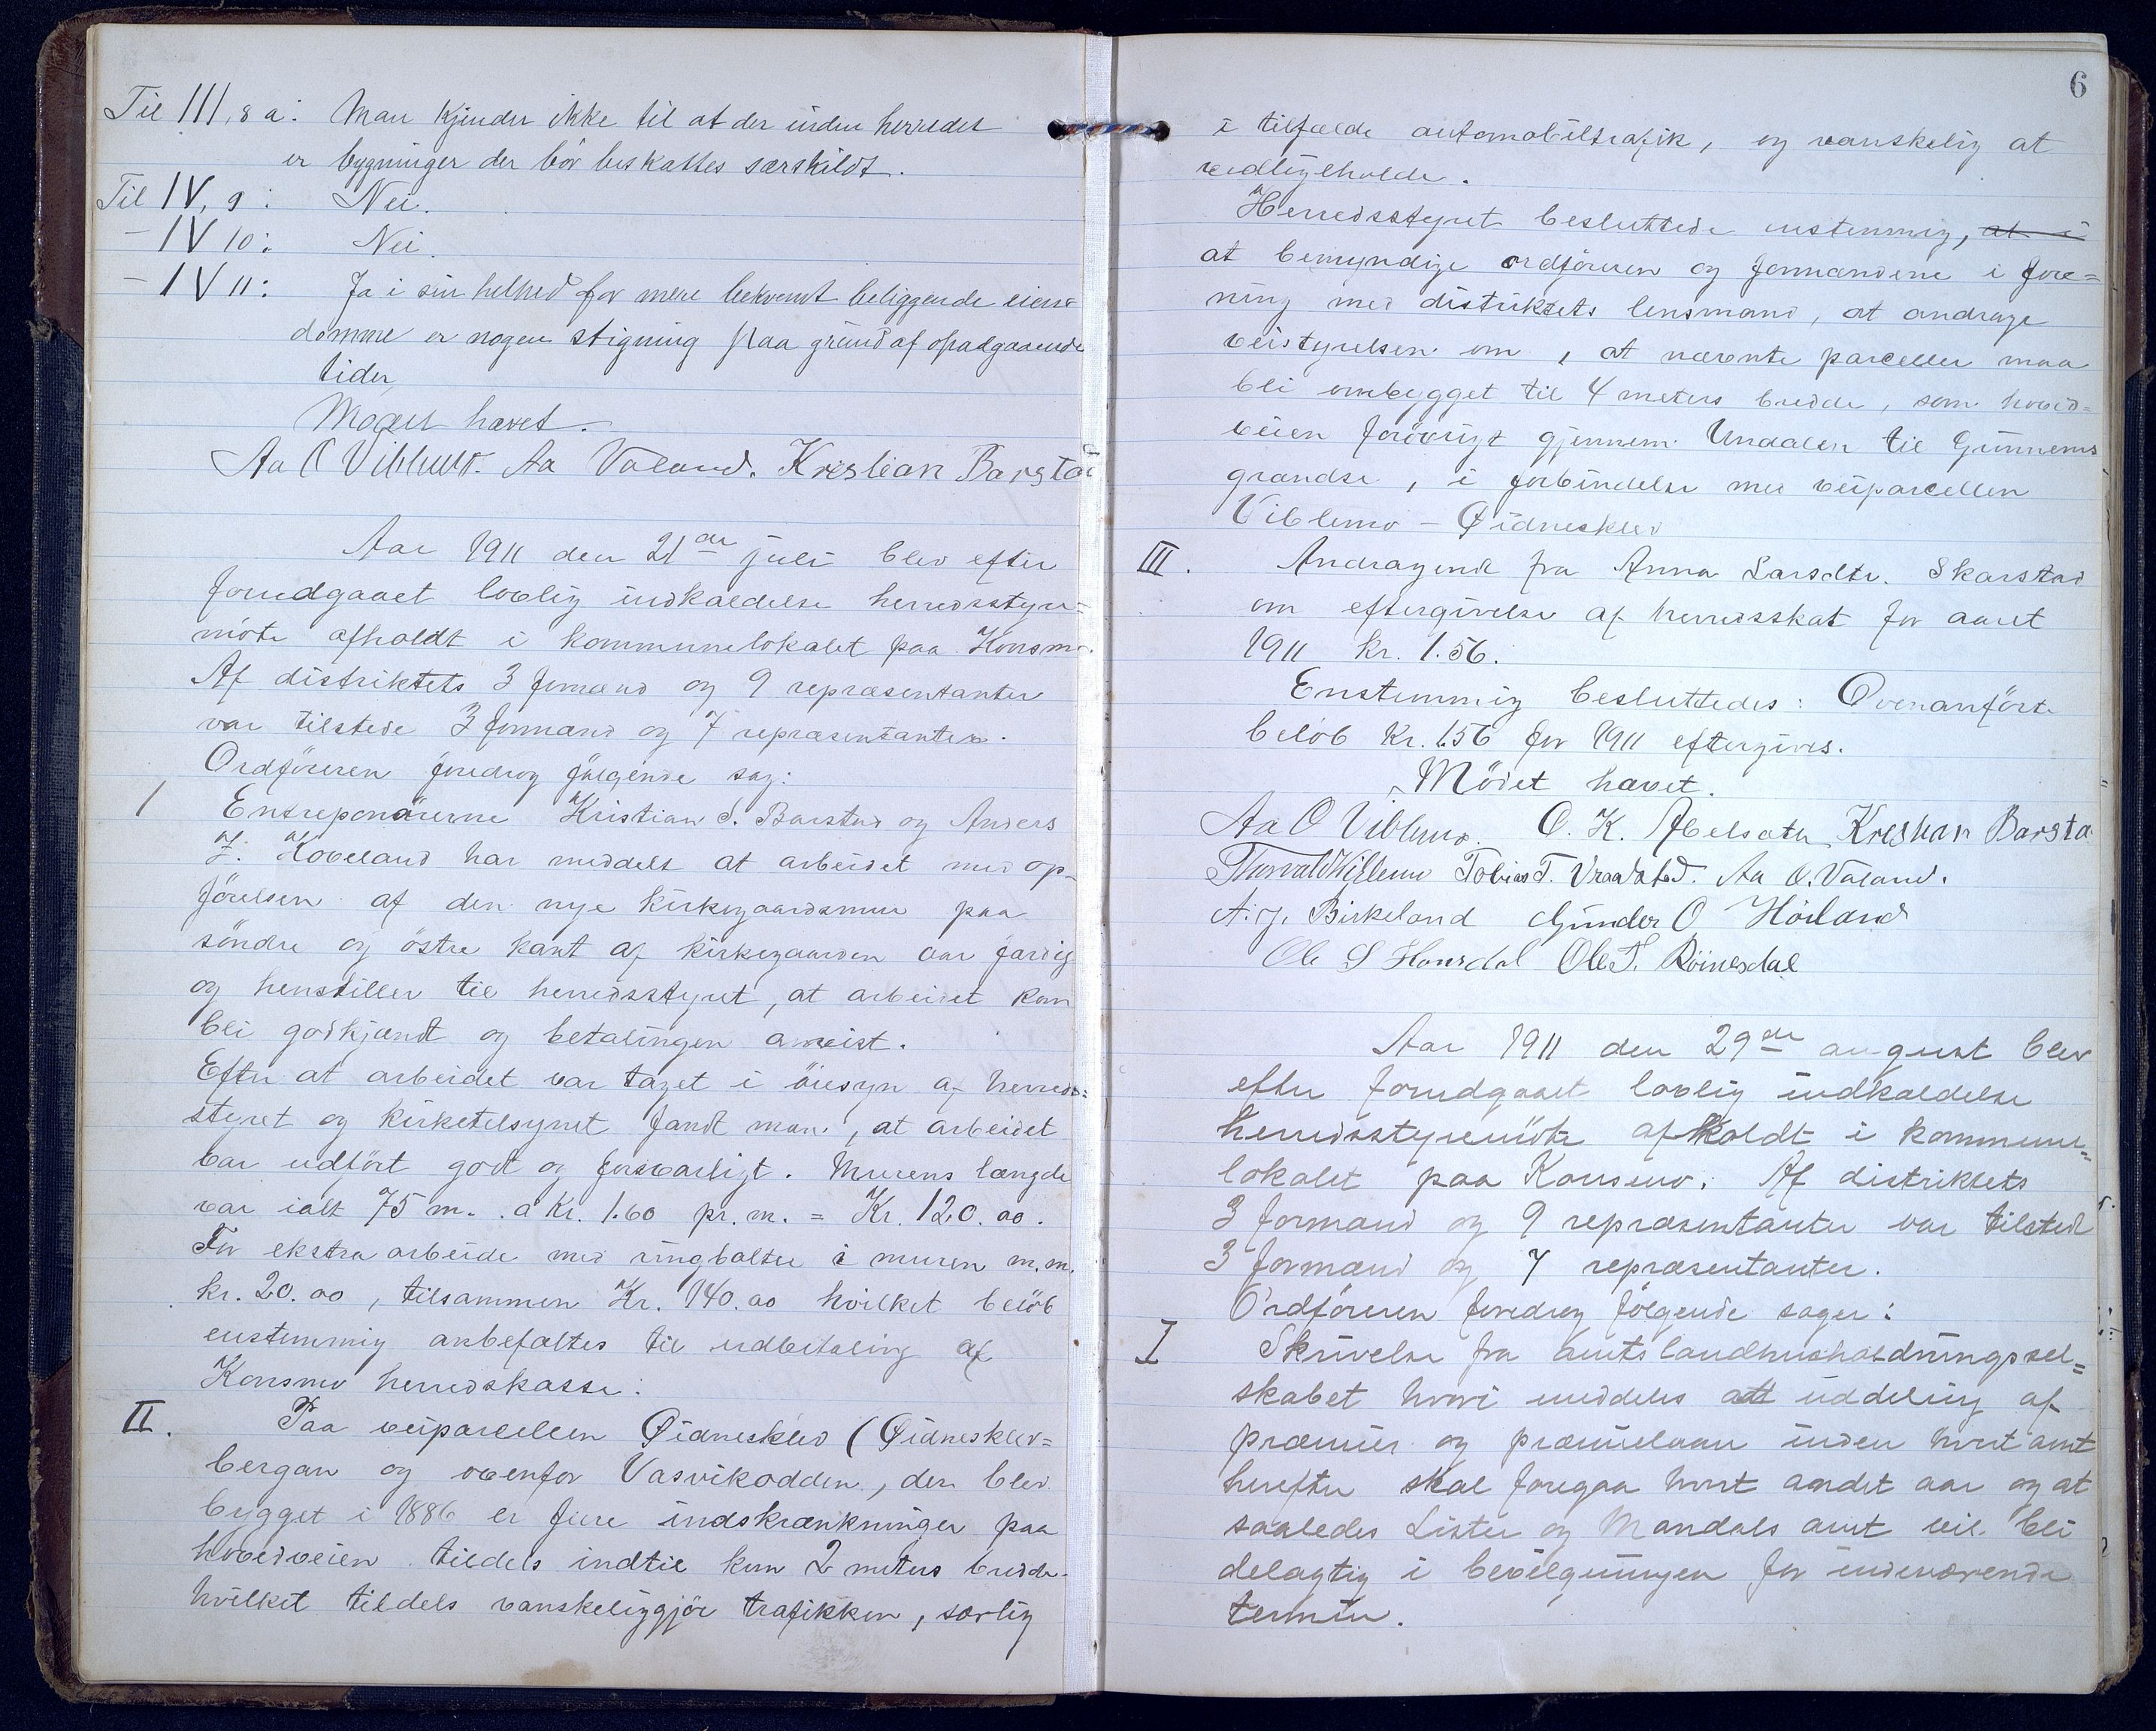 Til III, 8 a: Man kjender ikke til at der inden herredet
er bygninger der bör beskattes særskildt.
Til IV, 9: Nei.
- IV 10: Nei.
- IV 11: Ja i sin helhed for mere bekvemt beliggende eien-
domme er nogen stigning paa grund af opadgaaende
tider,
Mødet hævet.
Aa O Viblemo. Aa Valand. Kristian Barstad
Aar 1911 den 21de juli blev efter
forudgaaet lovlig indkaldelse herredsstyre=
möte afholdt i kommunelokalet paa Konsmo.
Af distriktets 3 formænd og 9 repræsentanter
var tilstede 3 formænd og 7 repræsentanter.
Ordföreren foredrog fölgende sag:
1 Entreponörerne Kristian S. Barstad og Anders
Z. Hoveland har meddelt at arbeidet med op-
förelsen af den nye kirkegaardsmur paa
söndre og östre kant af kirkegaarden var færdig
og henstiller til herredsstyret, at arbeidet kan
bli godkjændt og betalingen anvist.
Efter at arbeidet var taget i öiesyn af herreds=
styret og kirketilsynet fandt man, at arbeidet
var udfört godt og forsvarligt. Murens længde
var ialt 75 m. a Kr. 1.60 pr. m. = Kr. 120.00.
For ekstra arbeide med ringbolter i muren m.m.
kr. 20.00, tilsammen Kr. 140.00 hvilket belöb
enstemmig anbefaltes til udbetaling af
Konsmo herredskasse.
II. Paa veiparcellen Øidnesklev (Øidnesklev=
bergan og ovenfor Vasvikodden, der blev
bygget i 1886 er fiere indskrænkninger paa
hovedveien tildels indtil kun 2 meters bredde
hvilket tildels vanskeliggjör trafikken, særlig
6
i tilfælde automobiltrafik, og vanskelig at
vedligeholde.
Herredsstyret besluttede enstemmig, at i
at bemyndige ordföreren og formændene i fore=
ning med distriktets lensmand, at andrage
veistyrelsen om, at nævnte parceller maa
bli ombygget til 4 meters bredde, som hoved=
veien forövrigt gjennem Undalen til Grinnems
grændse, i forbindelse med veiparcellen
Viblemo - Øidnesklev
III. Andragende fra Anna Larsdtr. Skarstad
om eftergivelse af herredsskat for aaret
1911 kr. 1.56.
Enstemmig besluttedes: Ovenanförte
belöb kr. 1.56 for 1911 eftergives.
Mödet hævet.
Aa O Viblemo. O. K. Abelsæter Kristian Barsta
Thorvald Viblemo Tobias T. Vraadstad. Aa O. Valand.
A. J. Birkeland Gunder O Höiland
Ole S Homdal Ole T. Röinesdal
Aar 1911 den 29de august blev
efter forudgaaet lovlig indkaldelse
herredsstyremöte afholdt i kommune=
lokalet paa Konsmo. Af distriktets
3 formænd og 9 repræsentanter var tilstede
3 formænd og 7 repræsentanter.
Ordföreren foredrog fölgende sager:
I Skrivelse fra amtslandhusholdningssel=
skabet hvori meddeles at uddeling af
præmier og præmielaan inden hvert amt
herefter skal foregaa hvert andet aar og at
saaledes Lister og Mandals amt vil bli
delagtig i bevilgningen for indeværende
termin.